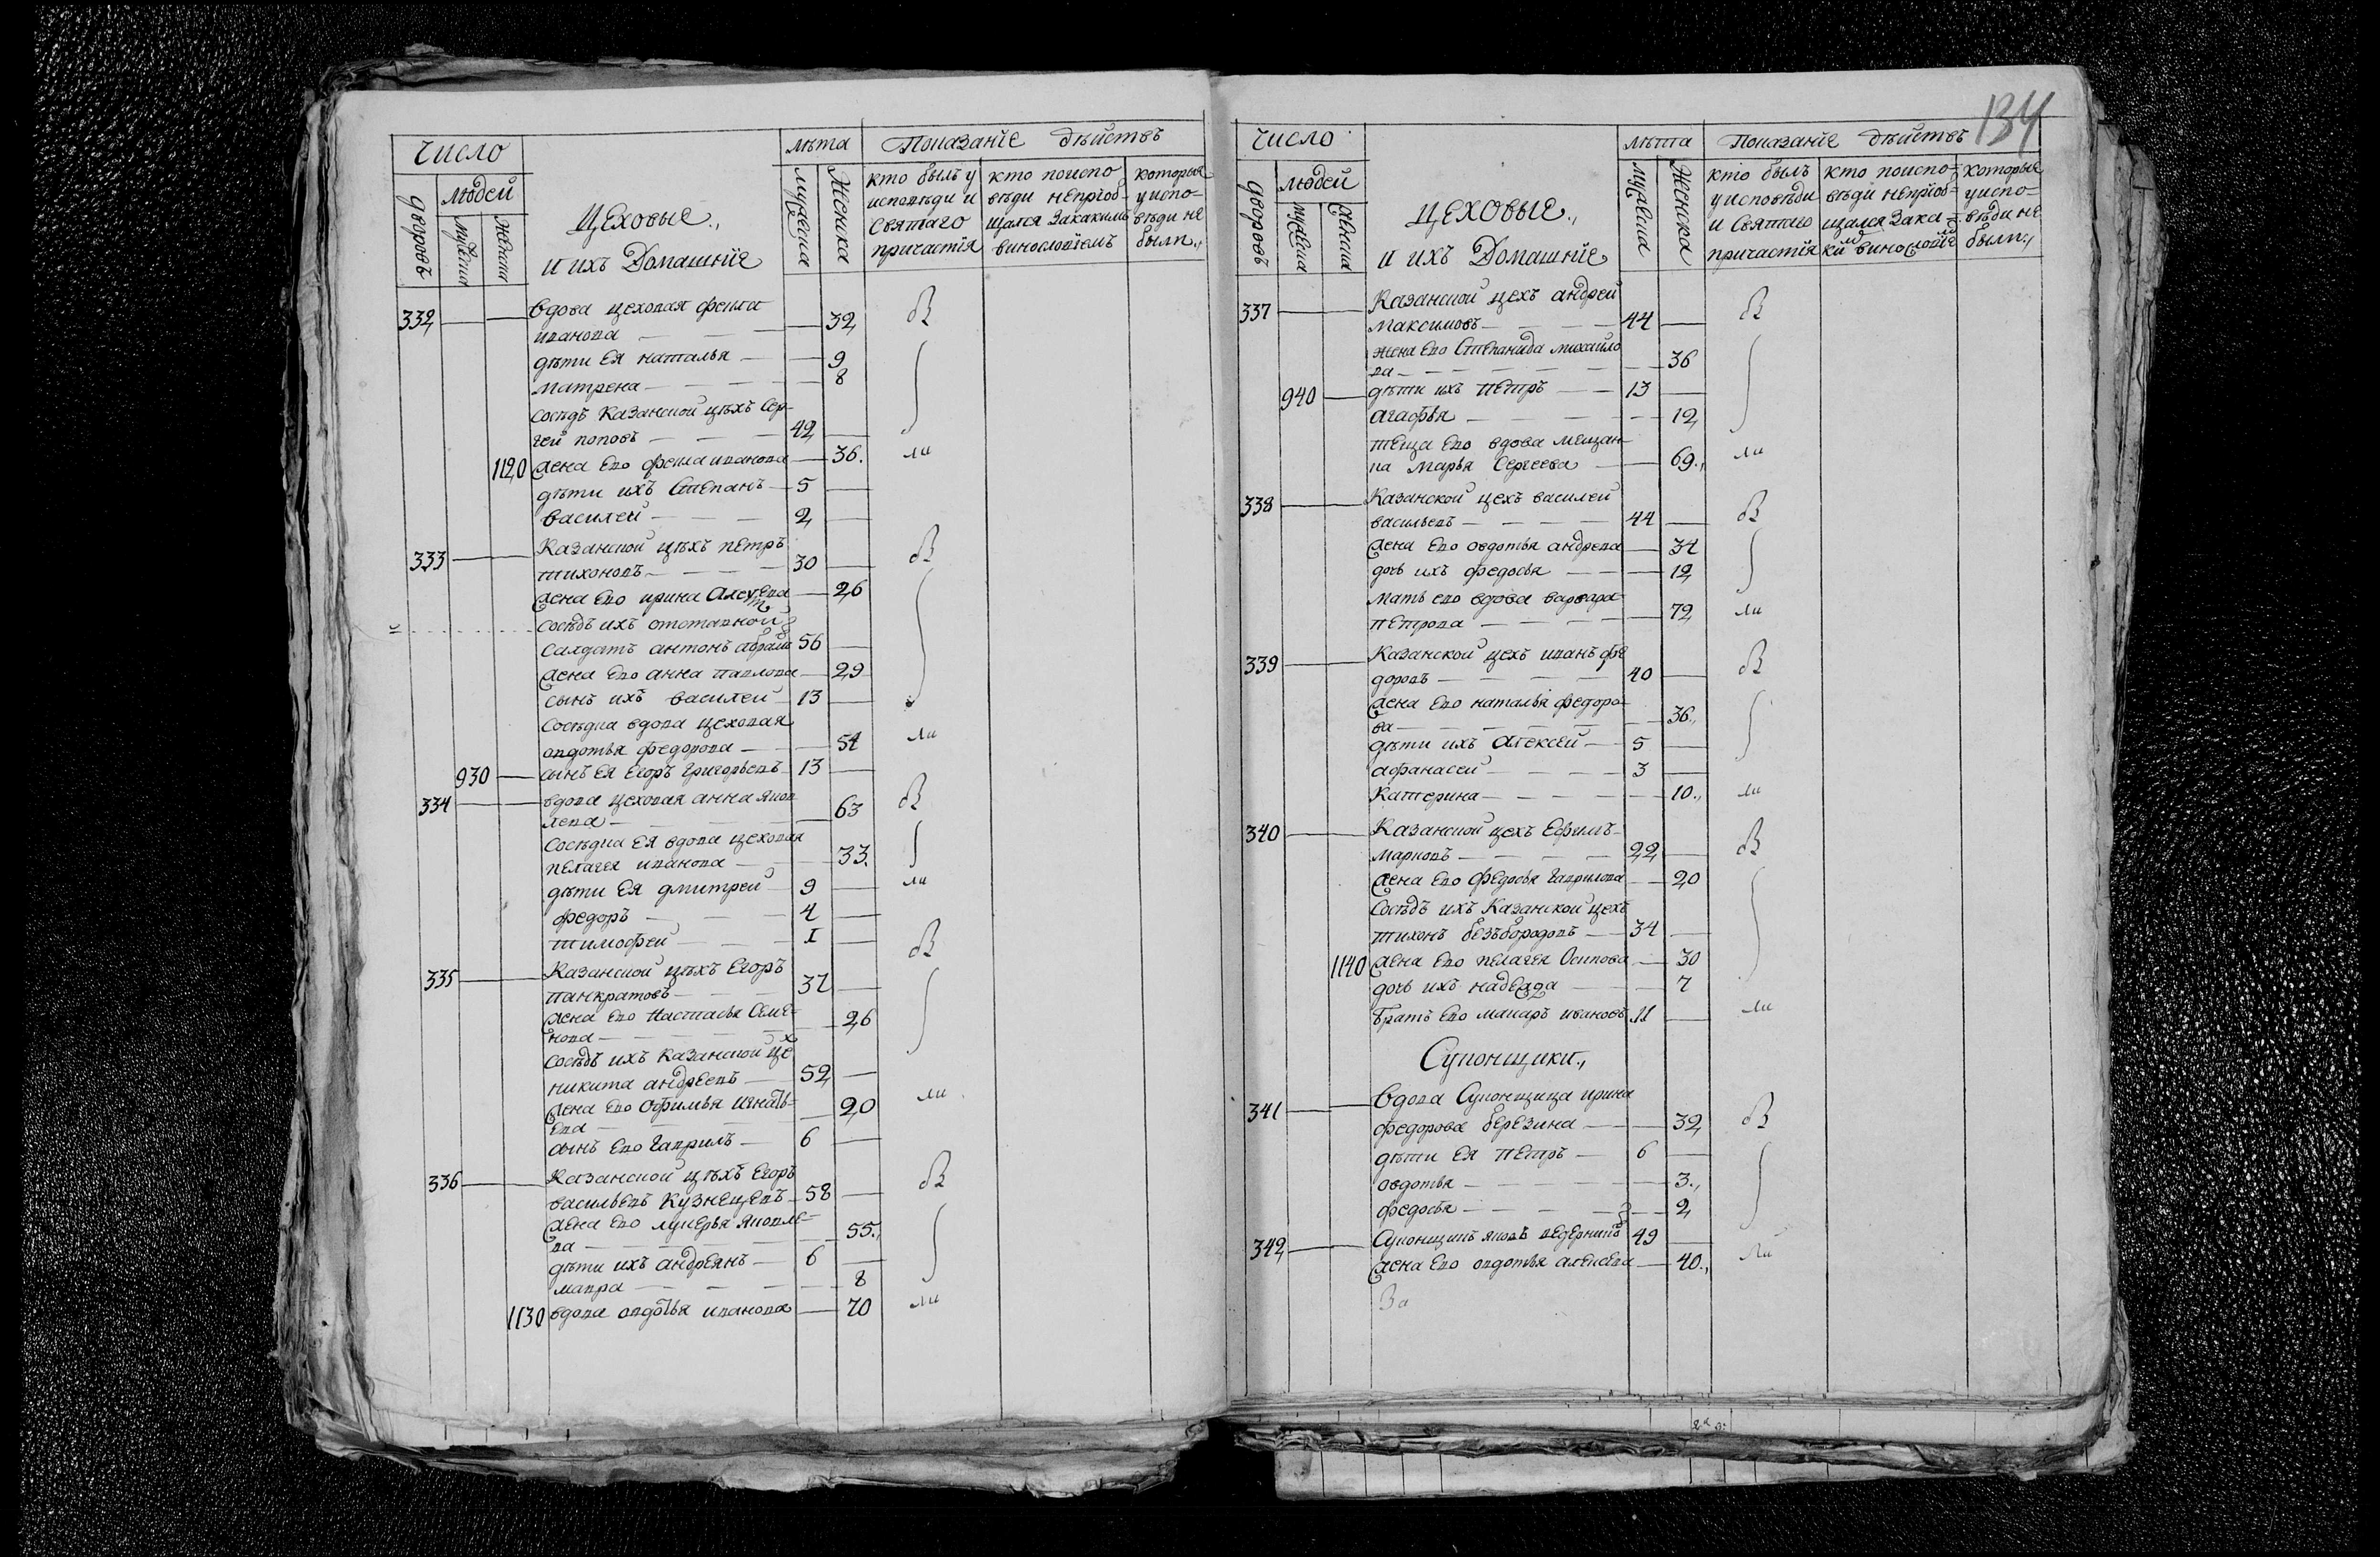 Число
лѣта
Показанїе дѣйствъ
дворовъ
людей
мужеска
женска
Цеховые.,
и ихъ Домашнїе
мужеска
женска
кто былъ у
исповѣди и
святаго
причастїя
кто поиспо
вѣди непрїоб-
щался Закакимъ
винословїемъ
которыя
уиспо-
вѣди не
были.,
332 вдова цеховая фекла
иванова 32
дѣти Ея наталья 9
матрена 8
сосѣдъ Казанской цѣхъ Сер-
гей поповъ 42
1120 жена Ево фекла иванова 36. ли
дѣти ихъ Степанъ 5
василей 2
333 Казанской цѣхъ петръ
тихоновъ 30
жена Ево ирина 26
сосѣдъ ихъ отставной
салдатъ антонъ абрам 56
жена Ево анна павлова 29
сынъ ихъ василей 13
сосѣдка вдова цеховая
авдотья федорова 54 ли
930 сынъ Ея Егоръ Григорьевъ 13
334 вдова цеховая анна яков
лева 63
сосѣдка Ея вдова цеховая
пелагея иванова 33.
дѣти Ея дмитрей 9 ли
федоръ 4
тимофей I
335 Казанской цѣхъ Егоръ
панкратовъ 37
жена Ево Настасья Семе-
нова 26
сосѣдъ ихъ Казанской цех
никита андреевъ 52
жена Ево Офимья Игнать-
ева 20 ли
сынъ Ево Гаврилъ 6
336 Казанской цѣхъ Егоръ
васильевъ Кузнецевъ 58
жена Ево лукерья яковле-
ва 55.,
дѣти ихъ андреянъ 6
мавра 8
1130 вдова авдотья иванова 70 ли
134
Число
лѣта
Показанїе дѣйствъ
дворовъ
людей
мужеска
женска
Цеховые.,
и ихъ Домашнїе
мужеска
женска
кто былъ
уисповѣди
и Святаго
причастїя
кто поиспо-
вѣди непрїоб-
щался Зака-
кимъ винословїе
которые
уиспо-
вѣди не
были.,
337 Казанской цехъ андрей
максимовъ 44
жена Ево Степанида михайло
ва 36
940 дѣти ихъ петръ 13
агафья 12
теща Ево вдова мещан-
ка Марья Сергеева 69., ли
338 Казанской цехъ василей
васильевъ 44
жена Ево овдотья андреева 34
дочь ихъ федосья 12
мать ево вдова варвара
петрова 72 ли
339 Казанской цехъ иванъ фе
доровъ 40
жена Ево наталья федоро-
ва 36.,
дѣти ихъ Алексей 5
афанасей 3
Катерина 10., ли
340 Казанской цехъ Ефимъ
марковъ 22
жена Ево Федосья Гаврилова 20
Сосѣдъ ихъ Казанской цехъ
тихонъ безъбородовъ 34
1140 жена Ево пелагея Осипова 30
дочь ихъ надежда 7
Братъ Ево макаръ ивановъ 11 ли
Суконщики.,
341 Вдова Суконщица ирина
федорова березина 32
дѣти Ея Петръ 6
овдотья 3.,
федосья 2
342 Суконщикъ яковъ 49
жена Ево овдотья алексева 40., ли
За